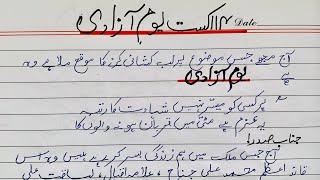 ۱۴ اگست یوم آزادی Date
آج مجھے جس موضوع پر لب کشائی کرنے کا موقع ملا ہے وہ
ہے یوم آزادی
ہر کسی کو میسر نہیں شہادت کا رتبہ
یہ عزم ہے مٹی میں قربان ہونے والوں کا
جناب صدر!
آج جس ملک میں ہم زندگی بسر کر رہے ہیں وہ اس
قائد اعظم محمد علی جناح، علامہ اقبال، لیاقت علی